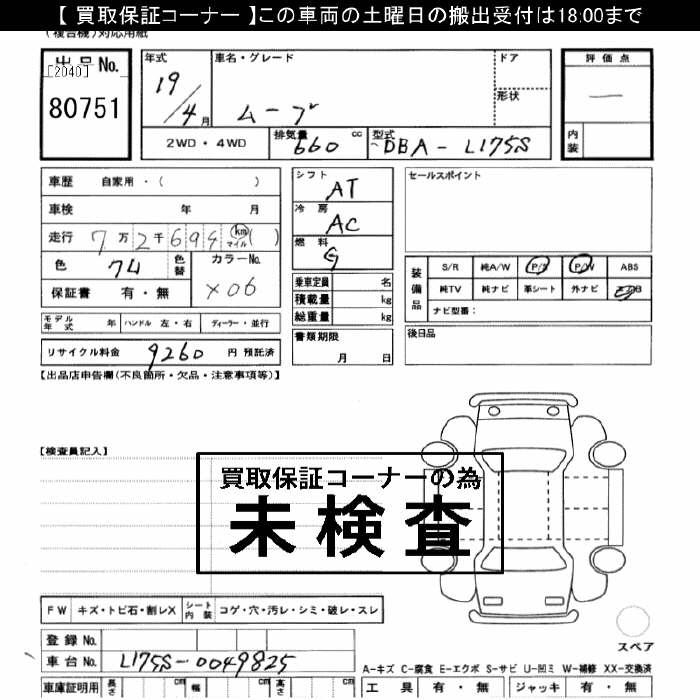 【 買取保証コーナー 】この車両の土曜日の搬出受付は18:00まで
(複合機)対応用紙
出品No.
[2040]
80751
年式
19/4月
車名・グレード
ムーブ
ドア
形状
2WD・4WD
排気量 660 cc
型式 DBA-L175S
評価点
―
内装
車歴 自家用・( )
車検 年 月
走行 7万2千694 km マイル ( )
色 クロ
色替
カラーNo. X06
保証書 有・無
モデル年式 年 ハンドル 左・右 ディーラー・並行
リサイクル料金 9260 円 預託済
シフト AT
冷房 AC
燃料 G
乗車定員 名
積載量 kg
総重量 kg
書類期限
月 日
セールスポイント
装備品
S/R 純A/W P/S P/W ABS
純TV 純ナビ 革シート 外ナビ エアB
ナビ型番:
後日品
【出品店申告欄(不良箇所・欠品・注意事項等)】
【検査員記入】
買取保証コーナーの為
未検査
FW キズ・トビ石・割レX シート内装 コゲ・穴・汚レ・シミ・破レ・スレ
スペア
登録No.
車台No. L175S-0049825
A-キズ C-腐食 E-エクボ S-サビ U-凹ミ W-補修 XX-交換済
車庫証明用 長さ cm 幅 cm 高さ cm
工具 有・無 ジャッキ 有・無